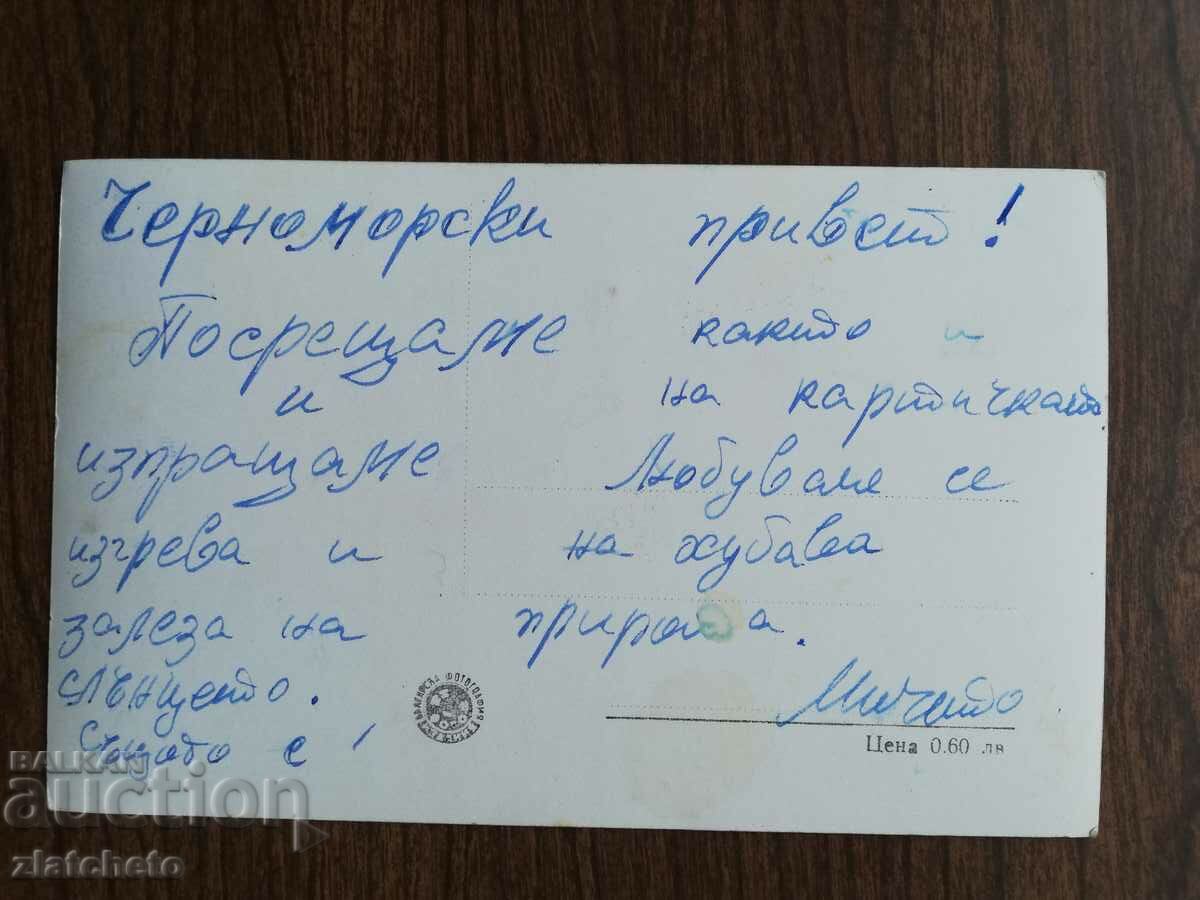 Черноморски привет!
Посрещаме
и
изпращаме
изгрева и
залеза на
слънцето.
с
както и
на картичката
Любуваме се
на хубава
природа.
Мичето
Цена 0.60 лв
БЪЛГАРСКА ФОТОГРАФИЯ
BALKAN
auction
zlatcheto